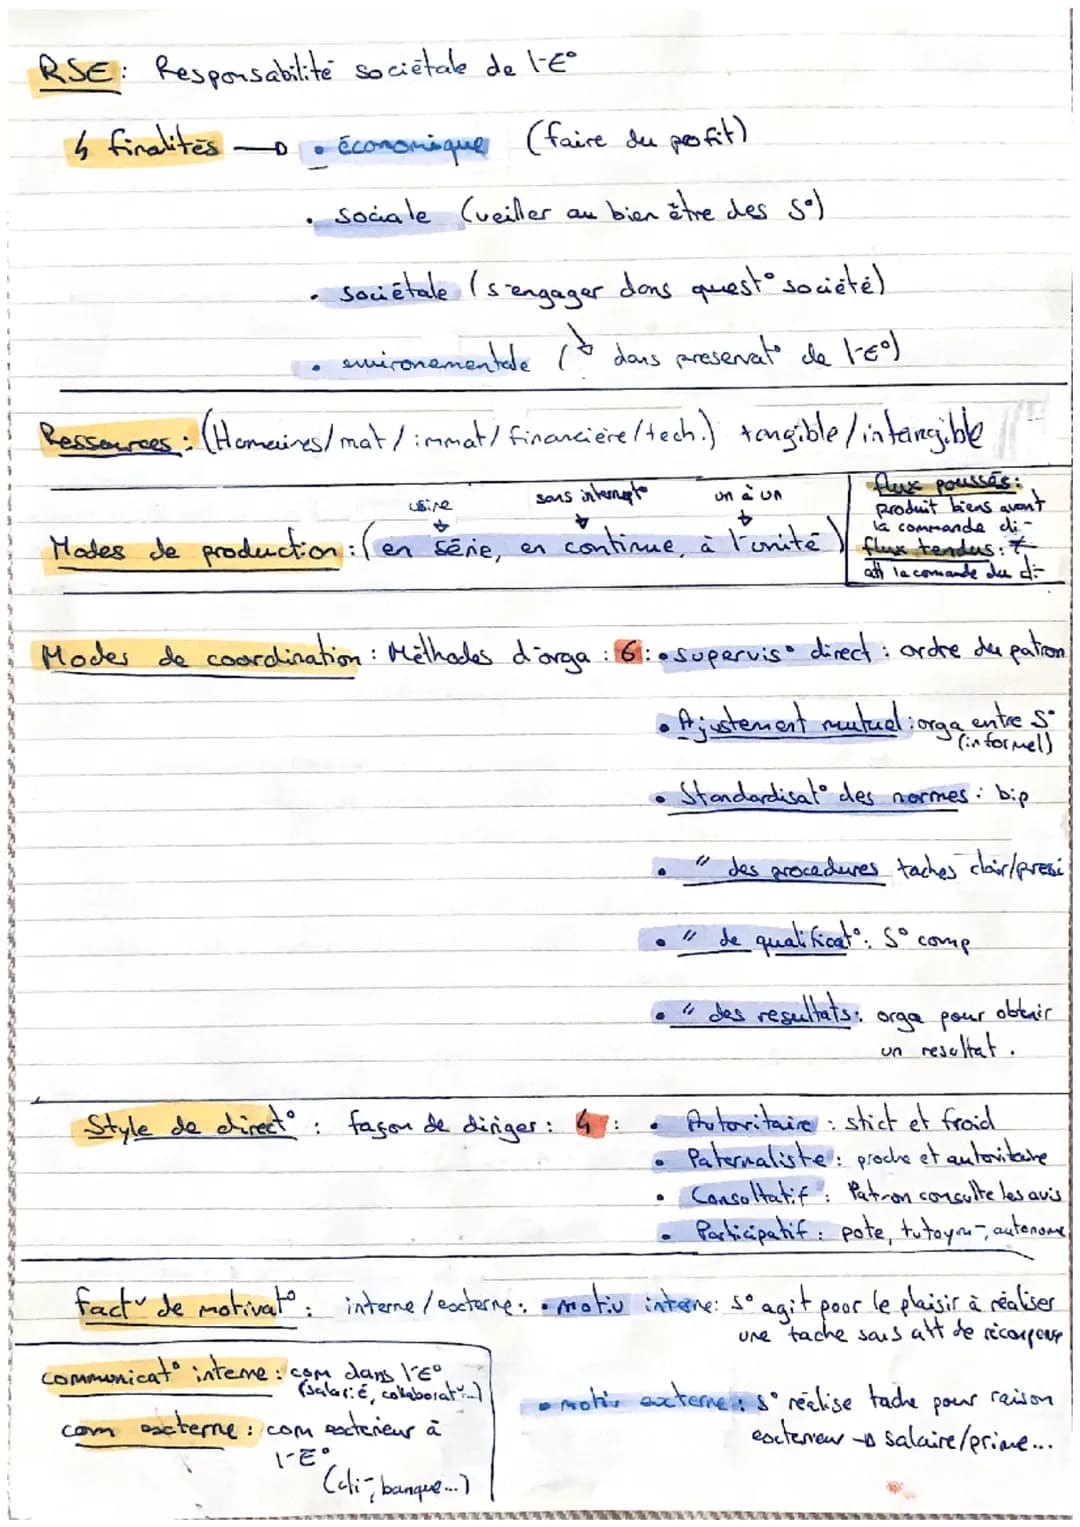 RSE : Responsabilité sociétale de l'E°
4 finalités → • économique (faire du profit)
• sociale (veiller au bien être des S°)
• sociétale (s'engager dans quest° société)
• environementale (↳ dans preservat° de l'E°)
Ressources : (Humaines/mat/immat/financière/tech.) tangible/intangible
usine sans interrupt° un à un
Modes de production : (en série, en continue, à l'unité)
flux poussés :
produit biens avant
la commande cli-
flux tendus : ≠
att la comande du cli-
Modes de coordination : Méthodes d'orga : 6 : • supervis° direct : ordre du patron
• Ajustement mutuel : orga entre S°
(informel)
• Standardisat° des normes : bip
• " des procedures taches clair/preci
• " de qualificat° : S° comp
• " des resultats : orga pour obtenir
un resultat.
Style de direct° : façon de diriger : 4 : • Autoritaire : stict et froid
• Paternaliste : proche et autoritaire
• Consultatif : Patron consulte les avis
• Participatif : pote, tutoym-, autonome
factr de motivat° : interne/externe : • motiv interne : S° agit pour le plaisir à réaliser
une tache sans att de récompense
• motiv externe : S° réalise tache pour raison
exterieur → salaire/prime...
communicat° interne : com dans l'E°
(salarié, collaboratr...)
com externe : com exterieur à
l'E°
(cli-, banque...)